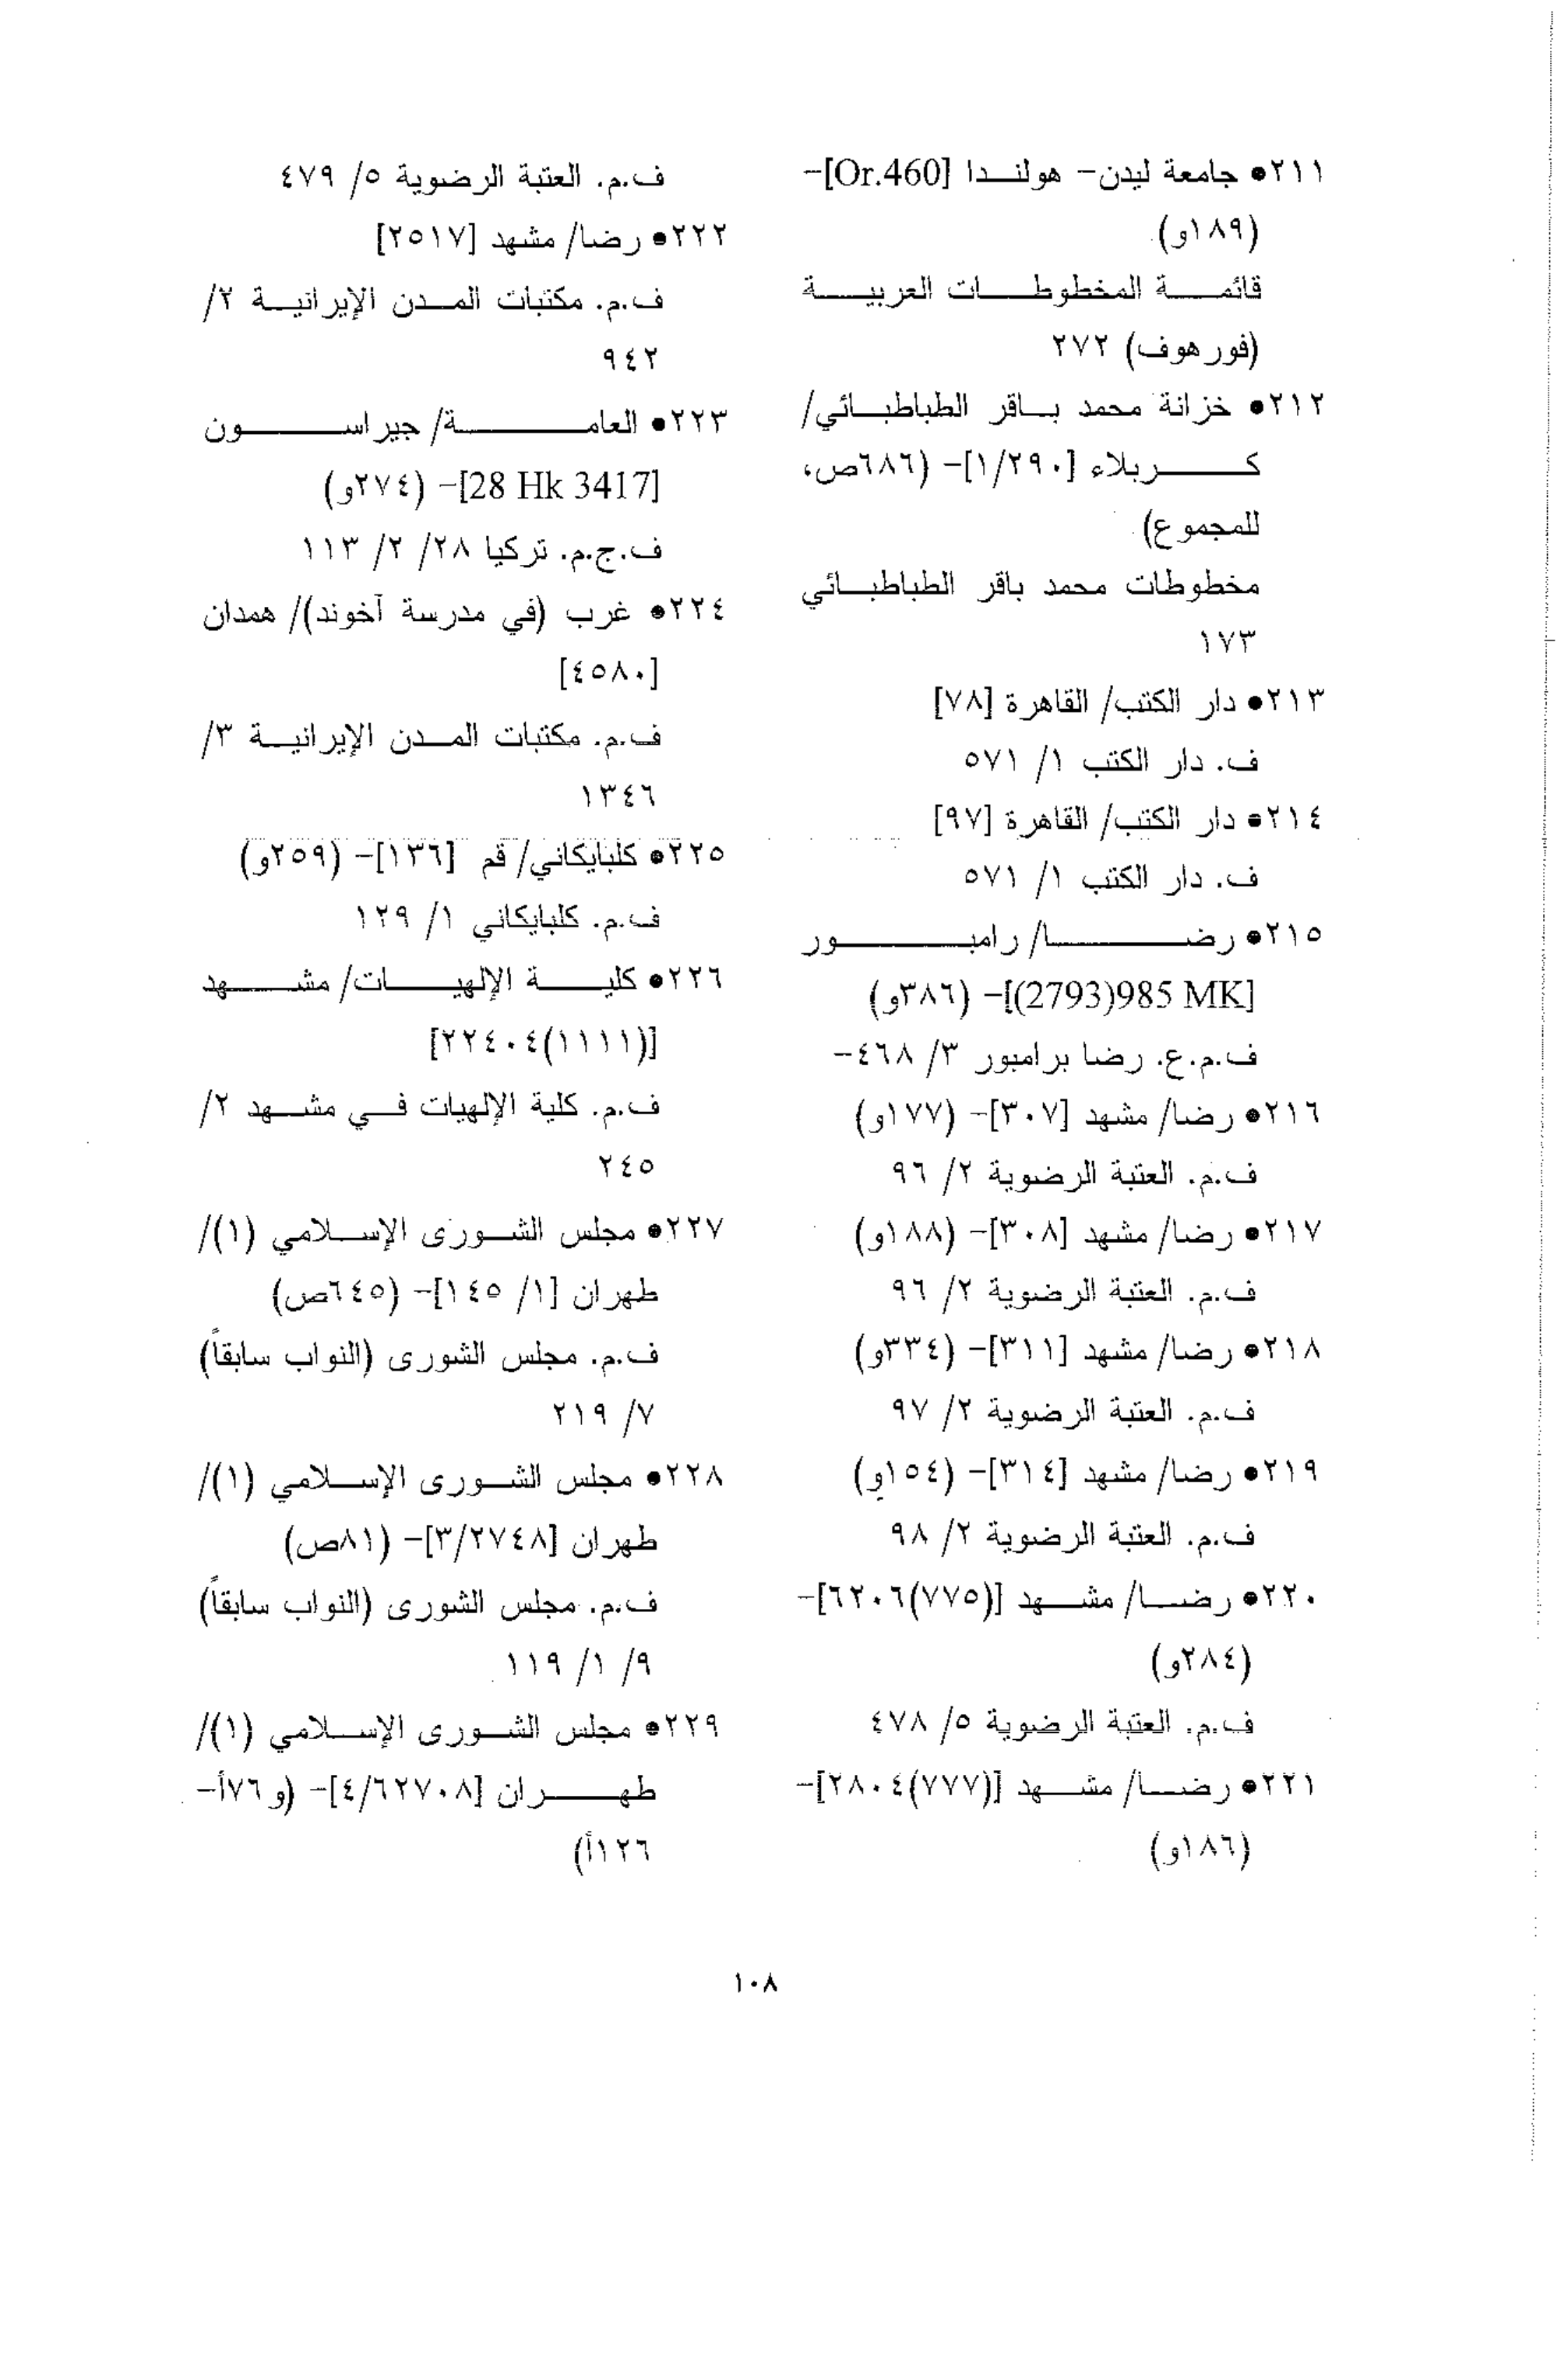 ٢١١• جامعة ليدن- هولندا [Or.460]-
(١٨٩و)
قائمة المخطوطات العربية
(فورهوف) ٢٧٢
٢١٢• خزانة محمد باقر الطباطبائي/
كربلاء [١/٢٩٠]- (٦٨٦ص،
للمجموع)
مخطوطات محمد باقر الطباطبائي
١٧٣
٢١٣• دار الكتب/ القاهرة [٧٨]
ف. دار الكتب ١/ ٥٧١
٢١٤• دار الكتب/ القاهرة [٩٧]
ف. دار الكتب ١/ ٥٧١
٢١٥• رضا/ رامبور
[2793)985 MK)]- (٣٨٦و)
ف.م.ع. رضا برامبور ٣/ ٤٦٨-
٢١٦• رضا/ مشهد [٣٠٧]- (١٧٧و)
ف.م. العتبة الرضوية ٢/ ٩٦
٢١٧• رضا/ مشهد [٣٠٨]- (١٨٨و)
ف.م. العتبة الرضوية ٢/ ٩٦
٢١٨• رضا/ مشهد [٣١١]- (٣٣٤و)
ف.م. العتبة الرضوية ٢/ ٩٧
٢١٩• رضا/ مشهد [٣١٤]- (١٥٤و)
ف.م. العتبة الرضوية ٢/ ٩٨
٢٢٠• رضا/ مشهد [(٧٧٥)٦٢٠٦]-
(٢٨٤و)
ف.م. العتبة الرضوية ٥/ ٤٧٨
٢٢١• رضا/ مشهد [(٧٧٧)٢٨٠٤]-
(١٨٦و)
ف.م. العتبة الرضوية ٥/ ٤٧٩
٢٢٢• رضا/ مشهد [٢٥١٧]
ف.م. مكتبات المدن الإيرانية ٢/
٩٤٢
٢٢٣• العامة/ جيراسون
[28 Hk 3417]- (٢٧٤و)
ف.ج.م. تركيا ٢٨/ ٢/ ١١٣
٢٢٤• غرب (في مدرسة آخوند)/ همدان
[٤٥٨٠]
ف.م. مكتبات المدن الإيرانية ٣/
١٣٤٦
٢٢٥• كلبايكاني/ قم [١٣٦]- (٢٥٩و)
ف.م. كلبايكاني ١/ ١٢٩
٢٢٦• كلية الإلهيات/ مشهد
[(١١١١)٢٢٤٠٤]
ف.م. كلية الإلهيات في مشهد ٢/
٢٤٥
٢٢٧• مجلس الشورى الإسلامي (١)/
طهران [١/ ١٤٥]- (٦٤٥ص)
ف.م. مجلس الشورى (النواب سابقاً)
٧/ ٢١٩
٢٢٨• مجلس الشورى الإسلامي (١)/
طهران [٣/٢٧٤٨]- (٨١ص)
ف.م. مجلس الشورى (النواب سابقاً)
٩/ ١/ ١١٩
٢٢٩• مجلس الشورى الإسلامي (١)/
طهران [٤/٦٢٧٠٨]- (و٧٦أ-
١٢٦أ)
١٠٨